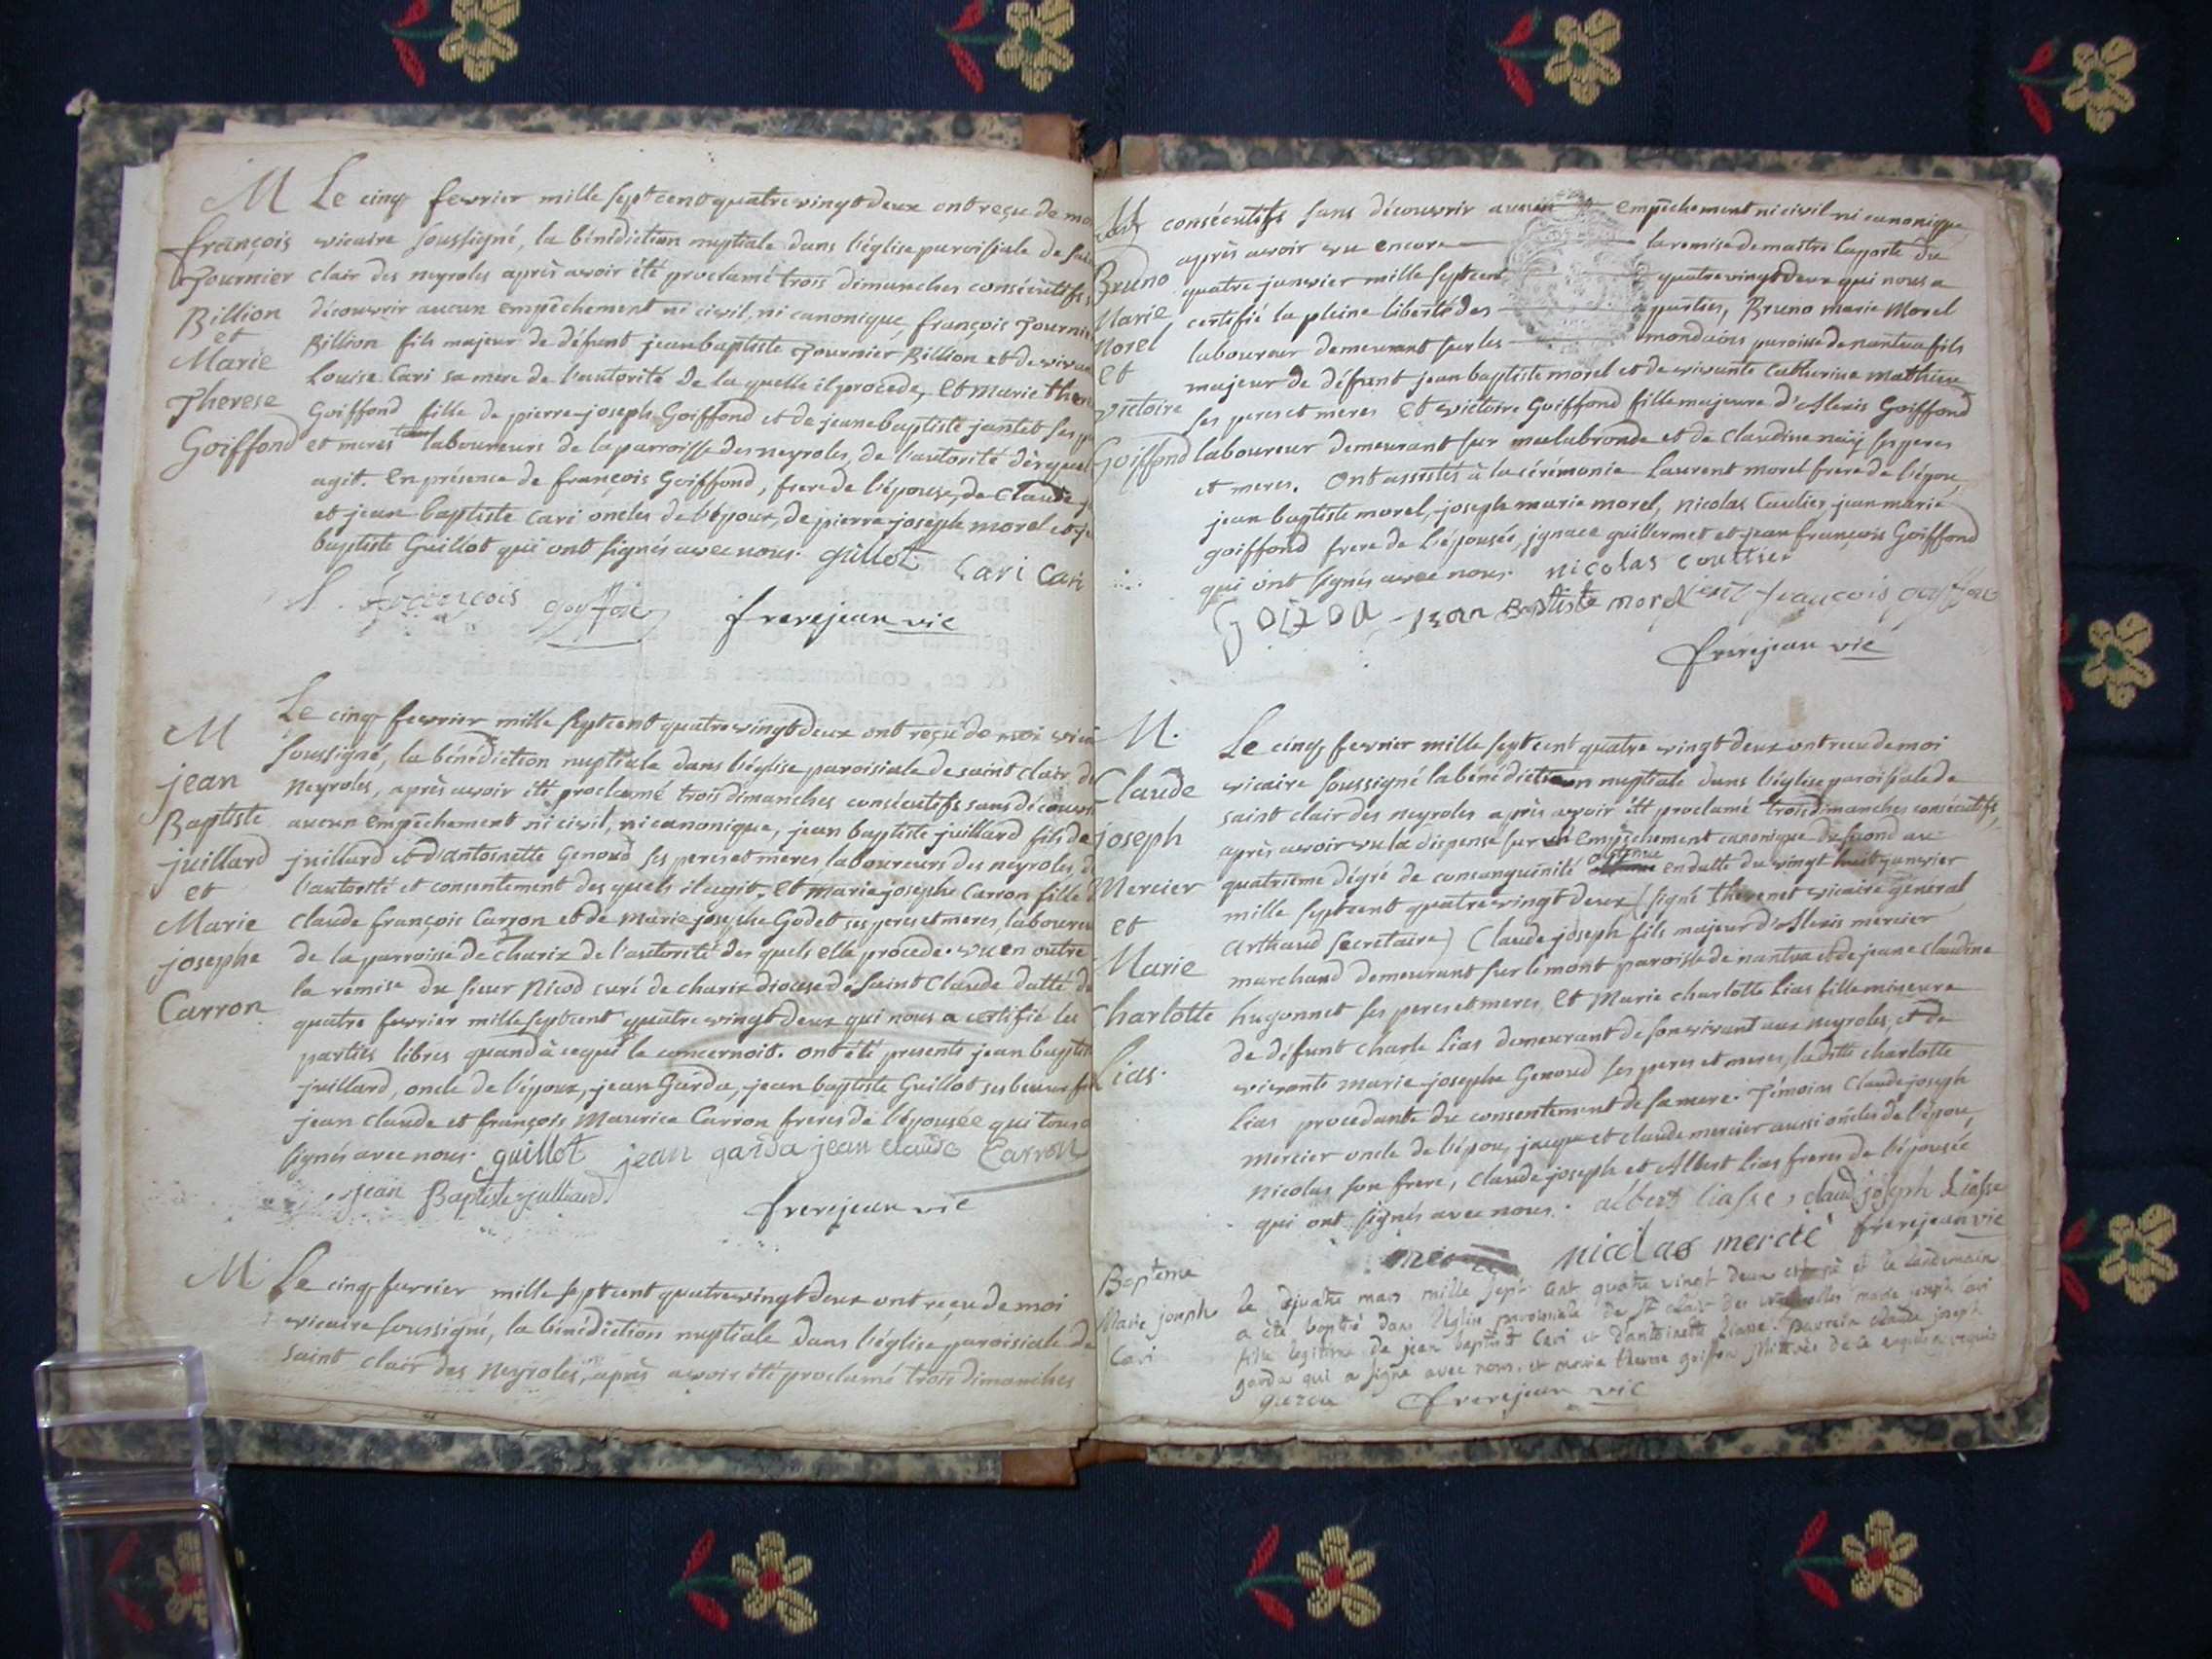 M Le cinq fevrier mille sept cent quatre vingt deux ont reçu de mo
françois vicaire soussigné, la bénédiction nuptiale dans l'église paroissiale de
Tournier clair des neyroles après avoir été proclamé trois dimanches consécutifs
Billion découvrir aucun empêchement ni civil, ni canonique, françois Tournie
et
Marie Billion fils majeur de défunt jean baptiste Tournier Billion et de vivan
Louise Cari sa mere de l'autorité de la quelle il procede, et marie ther
Therese Goiffond fille de pierre joseph Goiffond et de jeane baptiste jantet ses
Goiffond et meres laboureurs de la parroisse des neyroles, de l'autorité
agit. En présence de françois Goiffond, frere de l'épouse, de Claude
et jean baptiste cari oncles de l'époux, de pierre joseph morel et
baptiste Guillot qui ont signés avec nous. guillot Cari Cari
françois goyffon frerejean vic
Le cinq fevrier mille sept cent quatre vingt deux ont reçu de moi
M soussigné, la bénédiction nuptiale dans l'église paroisiale de saint clair
jean neyroles, après avoir été proclamé trois dimanches consécutifs sans
Baptiste aucun empêchement ni civil, ni canonique, jean baptiste juillard fils de
juillard juillard et d'antoinette Genoud ses peres et mères, laboureurs des neyroles,
et l'autorité et consentement des quels il agit. et marie josephe Carron fille
Marie Claude françois Carron et de marie josephe Godet ses peres et meres,
josephe de la parroisse de charix de l'autorité des quels elle procede. vu en outre
Carron la remise du sieur Nicod curé de charix diocese de saint Claude datté
quatre fevrier mille sept cent quatre vingt deux qui nous a certifié les
parties libres quand à ce qui le concernoit. ont été presents jean
juillard, oncle de l'époux, jean Garda, jean baptiste Guillot ses
jean claude et françois Maurice Carron freres de l'épousée qui
signés avec nous. guillot jean garda jean claude Carron
jean Baptiste juilliard frerejean vic
M Le cinq fevrier mille sept cent quatre vingt deux ont reçu de moi
vicaire soussigné, la bénédiction nuptiale dans l'église paroisiale de
saint clair des neyroles, après avoir été proclamé trois dimanches
M consécutifs sans découvrir aucun empêchement ni civil ni canonique
après avoir vu encore la remise de maitre laporte du
Bruno quatre janvier mille sept cent quatre vingt deux qui nous a
Marie certifié la pleine liberté des parties, Bruno marie Morel
Morel laboureur demeurant sur les paroisse de nantua fils
et majeur de défunt jean baptiste morel et de vivante Catherine mathieu
victoire ses peres et meres et victoire Goiffond fille majeure d'Alexis Goiffond
Goiffond laboureur demeurant sur malabronde et de Claudine ses peres
et meres. Ont assistés à la cérémonie Laurent morel frere de l'époux,
jean baptiste morel, joseph marie morel, Nicolas jean marie
goiffond frere de l'épousée, ignace guillermet et jean françois Goiffond
qui ont signés avec nous. nicolas
jean Baptiste morel jean françois
frerejean vic
M. Le cinq fevrier mille sept cent quatre vingt deux ont reçu de moi
Claude vicaire soussigné la bénédiction nuptiale dans l'église paroissiale de
saint clair des neyroles après avoir été proclamé trois dimanches consécutifs,
joseph après avoir vu la dispense sur un empêchement canonique du second au
Mercier quatrieme dégré de consanguinité obtenue en datte du vingt huit janvier
mille sept cent quatre vingt deux (signé thevenet vicaire général
et Arthaud secretaire) Claude joseph fils majeur d'Alexis mercier
Marie marchand demeurant sur le mont paroisse de nantua et de jeane claudine
Charlotte hugonnet ses peres et meres, et Marie charlotte Lias fille mineure
de défunt charle Lias demeurant de son vivant aux neyroles, et de
Lias. vivante marie josephe Genoud ses peres et meres, ladite charlotte
Lias procedante du consentement de sa mere. Témoins Claude joseph
mercier oncle de l'époux, jacque et claude mercier aussi oncles de l'époux,
Nicolas son frere, Claude joseph et Albert Lias freres de l'épousée
qui ont signés avec nous. albert liasse, claude joseph Liasse
nicolas mercié frerejean vic
Bapteme
Marie joseph le quatre mars mille sept cent quatre vingt deux est né et le lendemain
a été baptisé dans l'église paroissiale de st clair des marie joseph Cari
Cari fille legitime de jean baptiste Cari et d'antoinette Liasse. parrain claude joseph
garda qui a signé avec nous, et marie therese goiffon de ce requise
garda frerejean vic